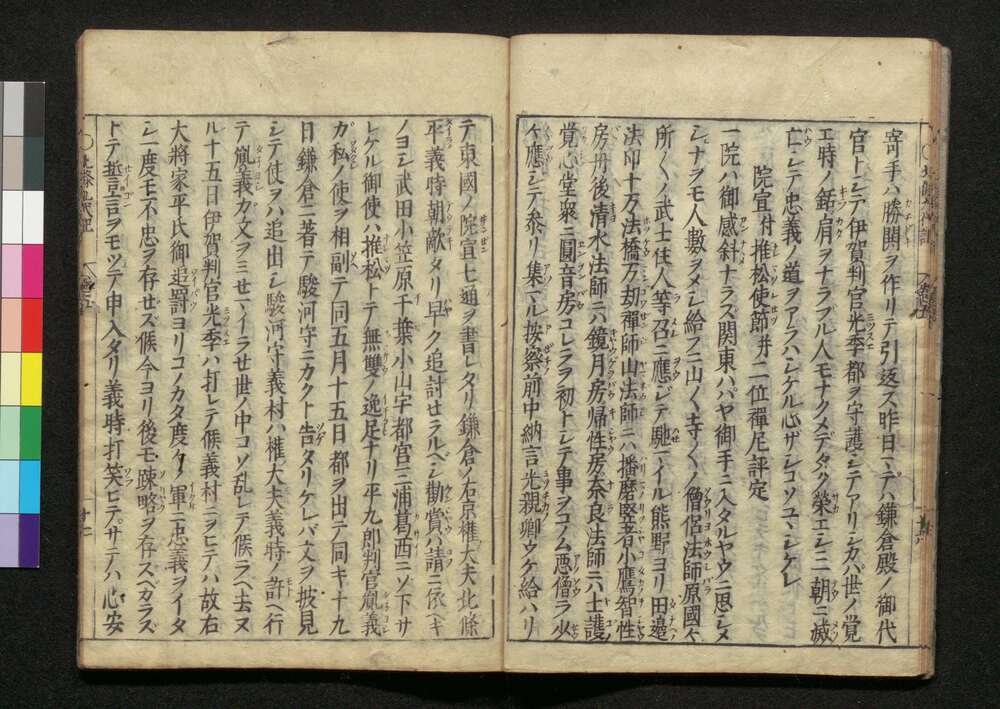 寄手ハ勝閧ヲ作リテ引返ス昨日マデハ鎌倉殿ノ御代
官トシテ伊賀判官光季都ヲ守護シテアリシカバ世ノ覚
エ時ノ鋸肩ヲナラブル人モナクメデタク榮エシニ一朝ニ滅
亡シテ忠義ノ道ヲアラハシケル心ザシコソユヽシケレ
院宣付推松使節并二位禪尼評定
一院ハ御感斜ナラズ関東ハバヤ御手ニ入タルヤウニ思シメ
シナラモ人數ヲメシ給フニ山〱寺〱ノ僧侶法師原國々
所〱ノ武士住人等召ニ應シテ馳マイル熊野ヨリ田邉
法印十万法橋万劫禪師山法師ニハ播磨竪者小鷹智性
房丹後清水法師ニハ鏡月房帰性房奈良法師ニハ土護
覚心堂衆ニ圓音房コレラヲ初トシテ事ヲコノム悪僧ラ少
々應シテ参リ集マル按察前中納言光親卿ウケ給ハリ
テ東國ノ院宣七通ヲ書レタリ鎌倉ノ右京權大夫北條
平義時朝敵タリ早ク追討セラルベシ勸賞ハ請ニ依ベキ
ノヨシ武田小笠原千葉小山宇都宮三浦葛西ニソ下サ
レケル御使ハ推松トテ無雙ノ逸足ナリ平九郎判官胤義
カ私ノ使ヲ相副テ同五月十五日都ヲ出テ同キ十九
日鎌倉ニ著テ駿河守ニカクト告タリケレバ文ヲ披見
シテ使ヲハ追出シ駿河守義村ハ權大夫義時ノ許ヘ行
テ胤義カ文ヲミセマイラセ世ノ中コソ乱レテ候ラヘ去ヌ
ル十五日伊賀判官光季ハ打レテ候義村ニヲヒテハ故右
大將家平氏御追罰ヨリコノカタ度々ノ軍ニ忠義ヲイタ
シ一度モ不忠ヲ存セズ候今ヨリ後モ疎略ヲ存スベカラズ
トテ誓言ヲモツテ申入タリ義時打笑ヒテサテハ心安